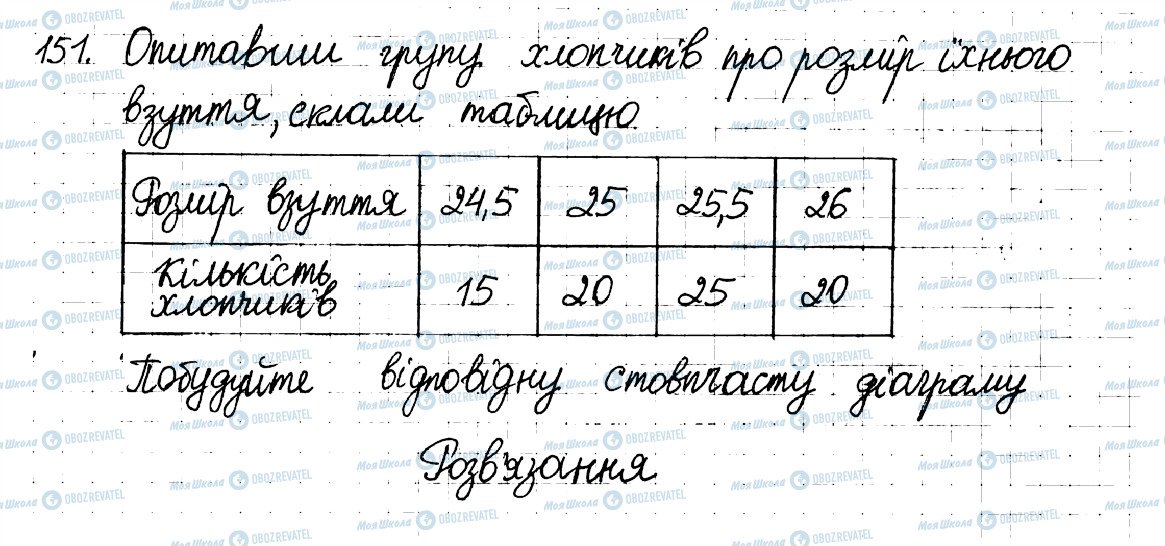 151. Опитавши групу хлопчиків про розмір їхнього
взуття, склали таблицю
Розмір взуття 24,5 25 25,5 26
Кількість
хлопчиків 15 20 25 20
Побудуйте відповідну стовпчасту діаграму
Розв'язання